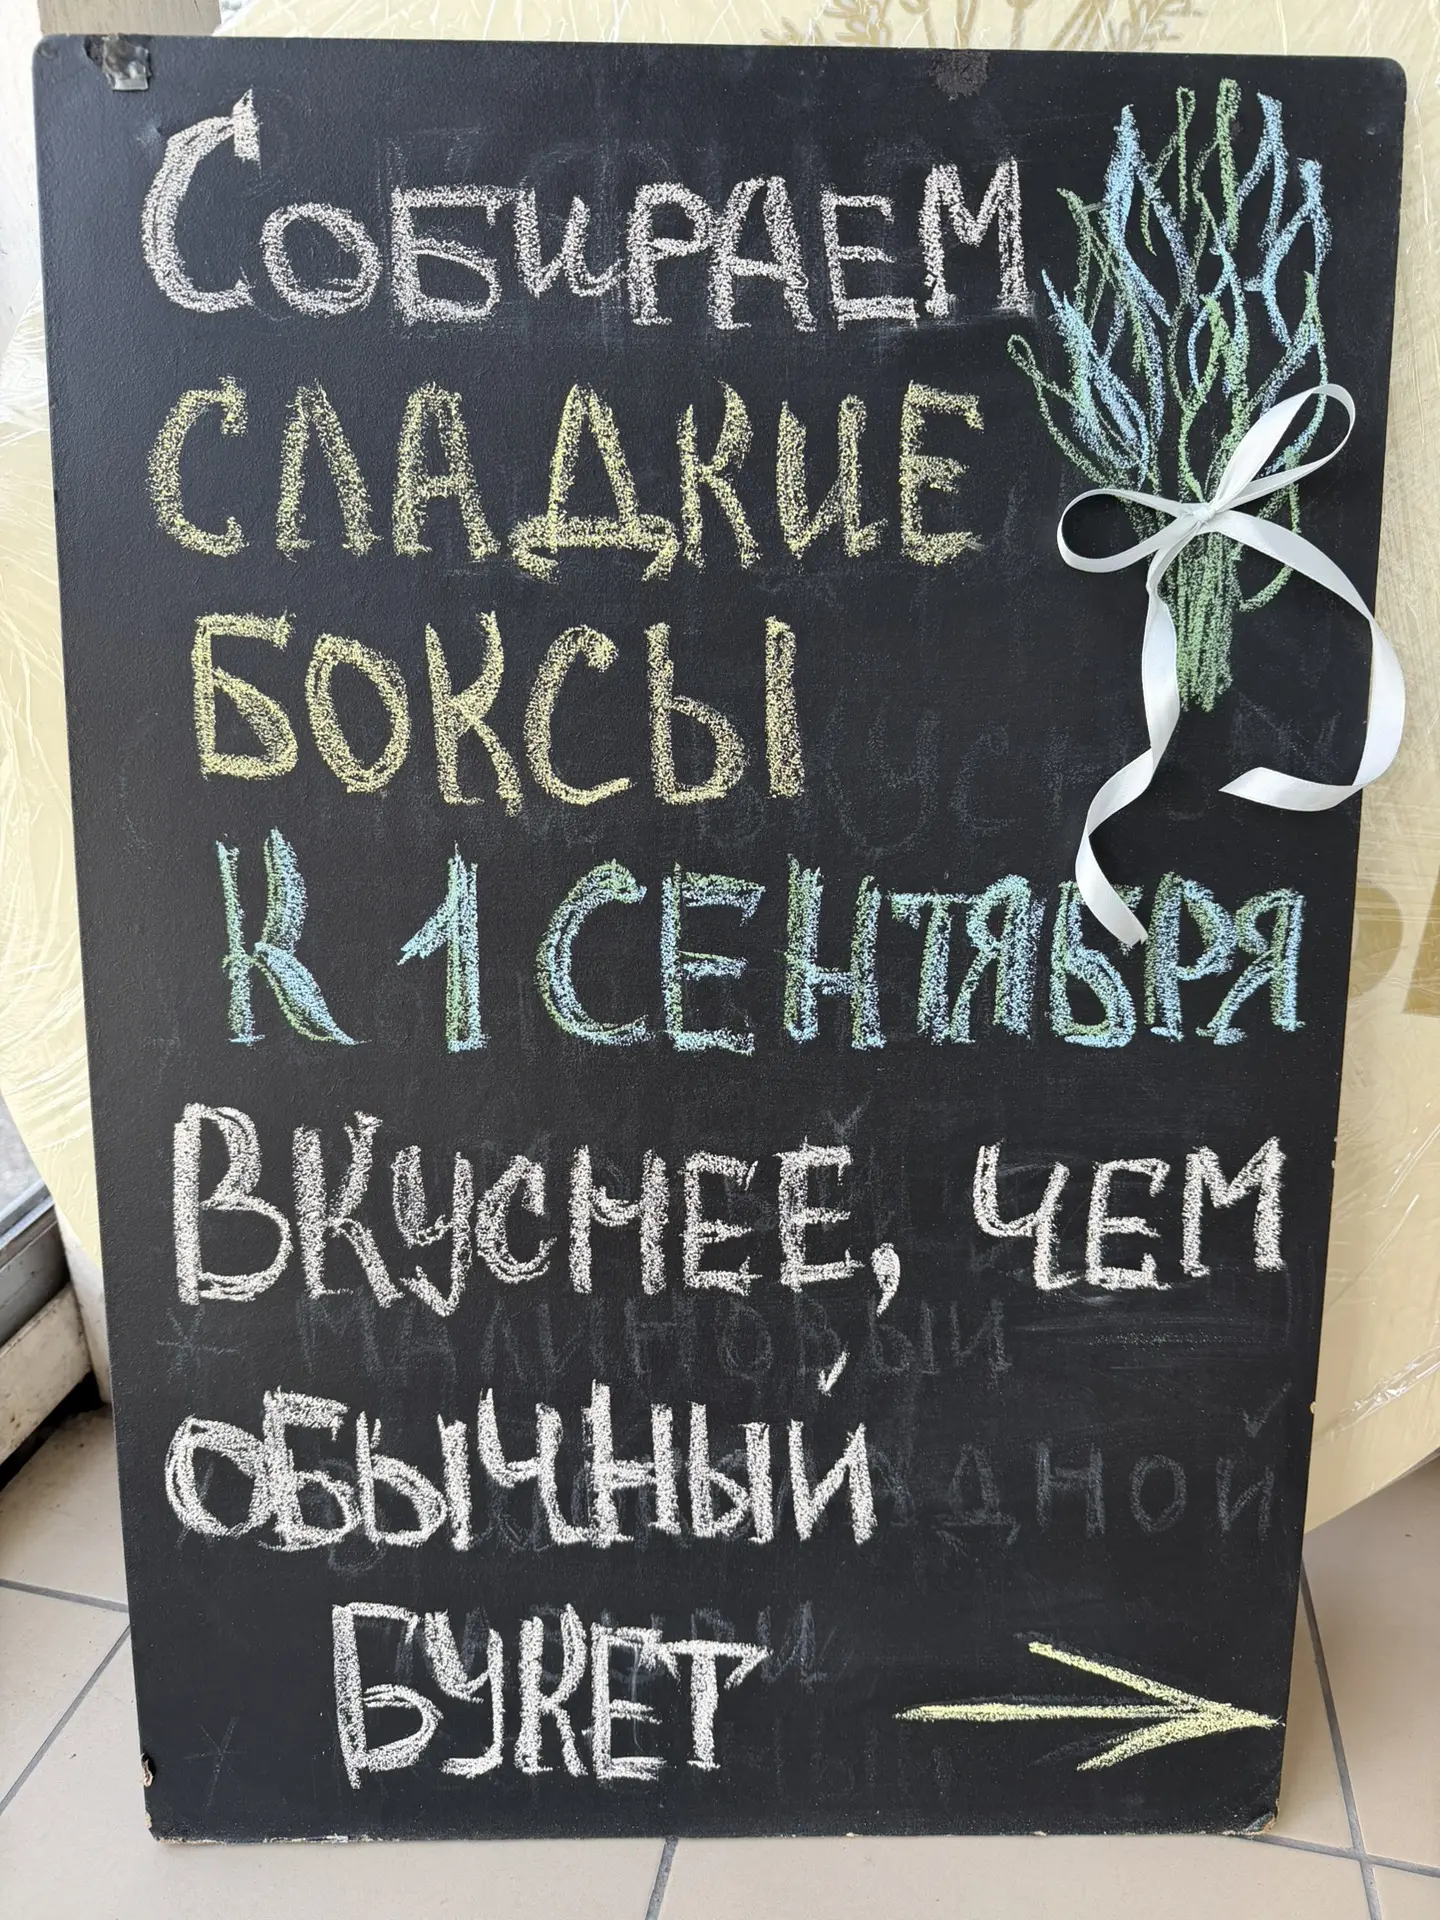 Собираем
сладкие
боксы
к 1 сентября
Вкуснее, чем
обычный
букет
малиновый